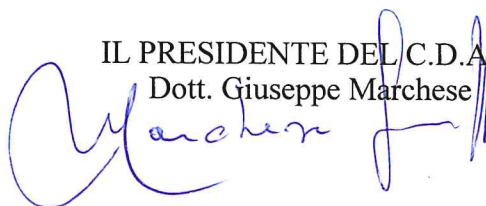 IL PRESIDENTE DEL C.D.A
Dott. Giuseppe Marchese
Marchese